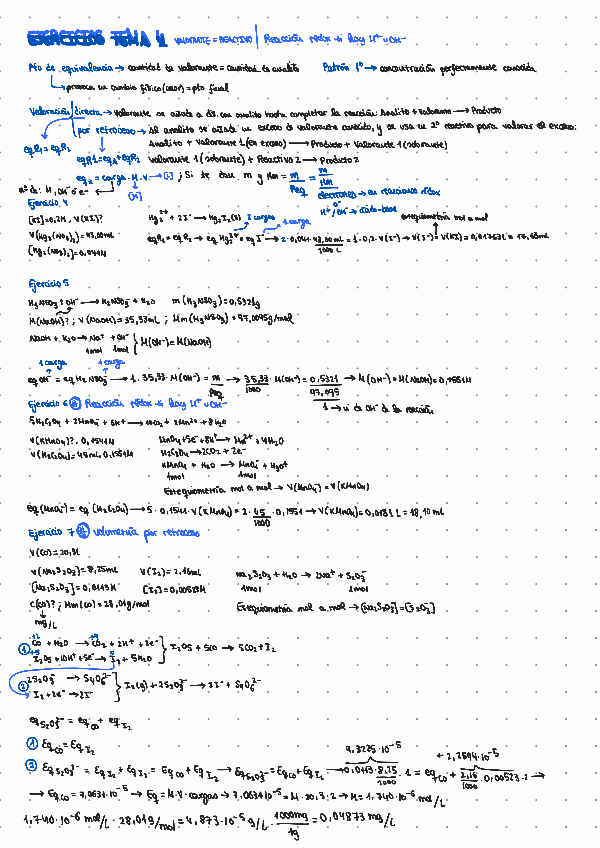 EJERCICIOS TEMA 4 VALORANTE = REACTIVO | Reacción rédox si hay H⁺ u OH⁻
Pto de equivalencia → cantidad de valorante = cantidad de analito Patrón 1º → concentración perfectamente conocida
↳ provoca un cambio físico (color) = pto final
Valoración directa → valorante se añade a dis. con analito hasta completar la reacción: Analito + Valorante → Producto
por retroceso → al analito se añade un exceso de valorante conocido, y se usa un 2º reactivo para valorar el exceso:
Analito + Valorante 1 (en exceso) → Producto + Valorante 1 (sobrante)
eqR₁ = eqR₂
eqR1 = eqA + eqR2 Valorante 1 (sobrante) + Reactivo 2 → Producto 2
eq = carga · M · V → [L] ; Si te dan m y Mm = m/Peq = m/Mm
[M]
nº de: H, OH⁻ o e⁻
electrones → en reacciones rédox
H⁺/OH⁻ → ácido-base
Ejercicio 4
[KI] = 0,2M, V(KI)?
V(Hg₂(NO₃)₂) = 43,00mL
[Hg₂(NO₃)₂] = 0,041M
Hg₂²⁺ + 2I⁻ → Hg₂I₂(s) 2 cargas 1 carga
estequiometría mol a mol
eqR₁ = eqR₂ → eq Hg₂²⁺ = eq I⁻ → 2 · 0,041 · 43,00mL/1000 L = 1 · 0,2 · V(I⁻) → V(I⁻) = V(KI) = 0,01763L = 17,63mL
Ejercicio 5
H₃NSO₃ + OH⁻ → H₂NSO₃⁻ + H₂O m(H₃NSO₃) = 0,5321g
M(NaOH)? ; V(NaOH) = 35,33mL ; Mm(H₃NSO₃) = 97,0095g/mol
NaOH + H₂O → Na⁺ + OH⁻ } M(OH⁻) = M(NaOH)
1mol 1mol
1 carga 1 carga
eq OH⁻ = eq H₃NSO₃ → 1 · 35,33 · M(OH⁻) = m/Peq → 35,33/1000 · M(OH⁻) = 0,5321/97,095 → M(OH⁻) = M(NaOH) = 0,1551M
1 → nº de OH⁻ de la reacción
Ejercicio 6 Reacción rédox si hay H⁺ u OH⁻
5H₂C₂O₄ + 2MnO₄⁻ + 6H⁺ → 10CO₂ + 2Mn²⁺ + 8H₂O
V(KMnO₄)? · 0,1544M
V(H₂C₂O₄) = 45mL · 0,1551M
MnO₄⁻ + 5e⁻ + 8H⁺ → Mn²⁺ + 4H₂O
H₂C₂O₄ → 2CO₂ + 2e⁻
KMnO₄ + H₂O → MnO₄⁻ + H₃O⁺
1mol 1mol
Estequiometría mol a mol → V(MnO₄⁻) = V(KMnO₄)
eq(MnO₄⁻) = eq(H₂C₂O₄) → 5 · 0,1544 · V(KMnO₄) = 2 · 45/1000 · 0,1551 → V(KMnO₄) = 0,0181 L = 18,10mL
Ejercicio 7 volumetría por retroceso
V(CO) = 20,3L
V(Na₂S₂O₃) = 8,25mL V(I₂) = 2,16mL Na₂S₂O₃ + H₂O → 2Na⁺ + S₂O₃²⁻
[Na₂S₂O₃] = 0,0113M [I₂] = 0,00523M 1mol 1mol
C(CO)? ; Mm(CO) = 28,01g/mol Estequiometría mol a mol → [Na₂S₂O₃] = [S₂O₃]
mg/L
① CO + H₂O → CO₂ + 2H⁺ + 2e⁻
I₂O₅ + 10H⁺ + 5e⁻ → I₂ + 5H₂O } I₂O₅ + 5CO → 5CO₂ + I₂
② 2S₂O₃²⁻ → S₄O₆²⁻
I₂ + 2e⁻ → 2I⁻ } I₂(g) + 2S₂O₃²⁻ → 2I⁻ + S₄O₆²⁻
eq S₂O₃²⁻ = eq CO + eq I₂
① Eq CO = Eq I₂
9,3225·10⁻⁵ 2,2594·10⁻⁵
② Eq S₂O₃²⁻ = Eq I₂ + Eq I₂ = Eq CO + Eq I₂ → Eq S₂O₃²⁻ = Eq CO + Eq I₂ → 0,0113 · 8,25/1000 · 1 = eq CO + 2,16/1000 · 0,00523 · 2 →
→ Eq CO = 7,0631·10⁻⁵ → Eq = M · V · cargas → 7,0631·10⁻⁵ = M · 20,3 · 2 → M = 1,740·10⁻⁶ mol/L
1,740·10⁻⁶ mol/L · 28,01g/mol = 4,873·10⁻⁵ g/L · 1000mg/1g = 0,04873 mg/L